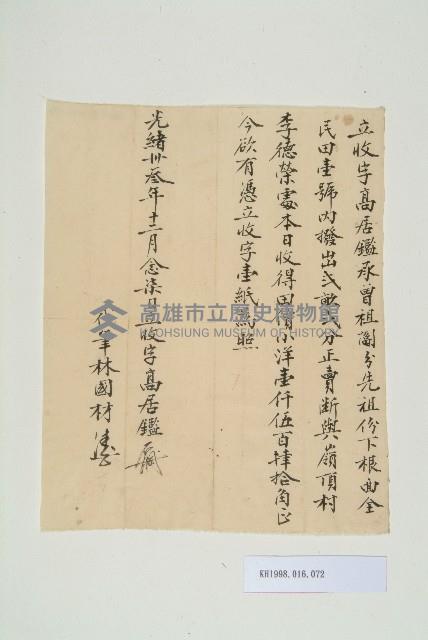 立收字髙居鑑承曾祖鬮分先祖份下根面全
民田壹號內撥出弍畝弍分正賣斷與嶺頂村
李德榮處本日收得田價小洋壹仟伍百肆拾角正
今欲有憑立收字壹紙爲照
光緒卅叁年十二月念柒日立收字髙居鑑
代筆林國材
高雄市立歷史博物館
KAOHSIUNG MUSEUM OF HISTORY
KH1998.016.072